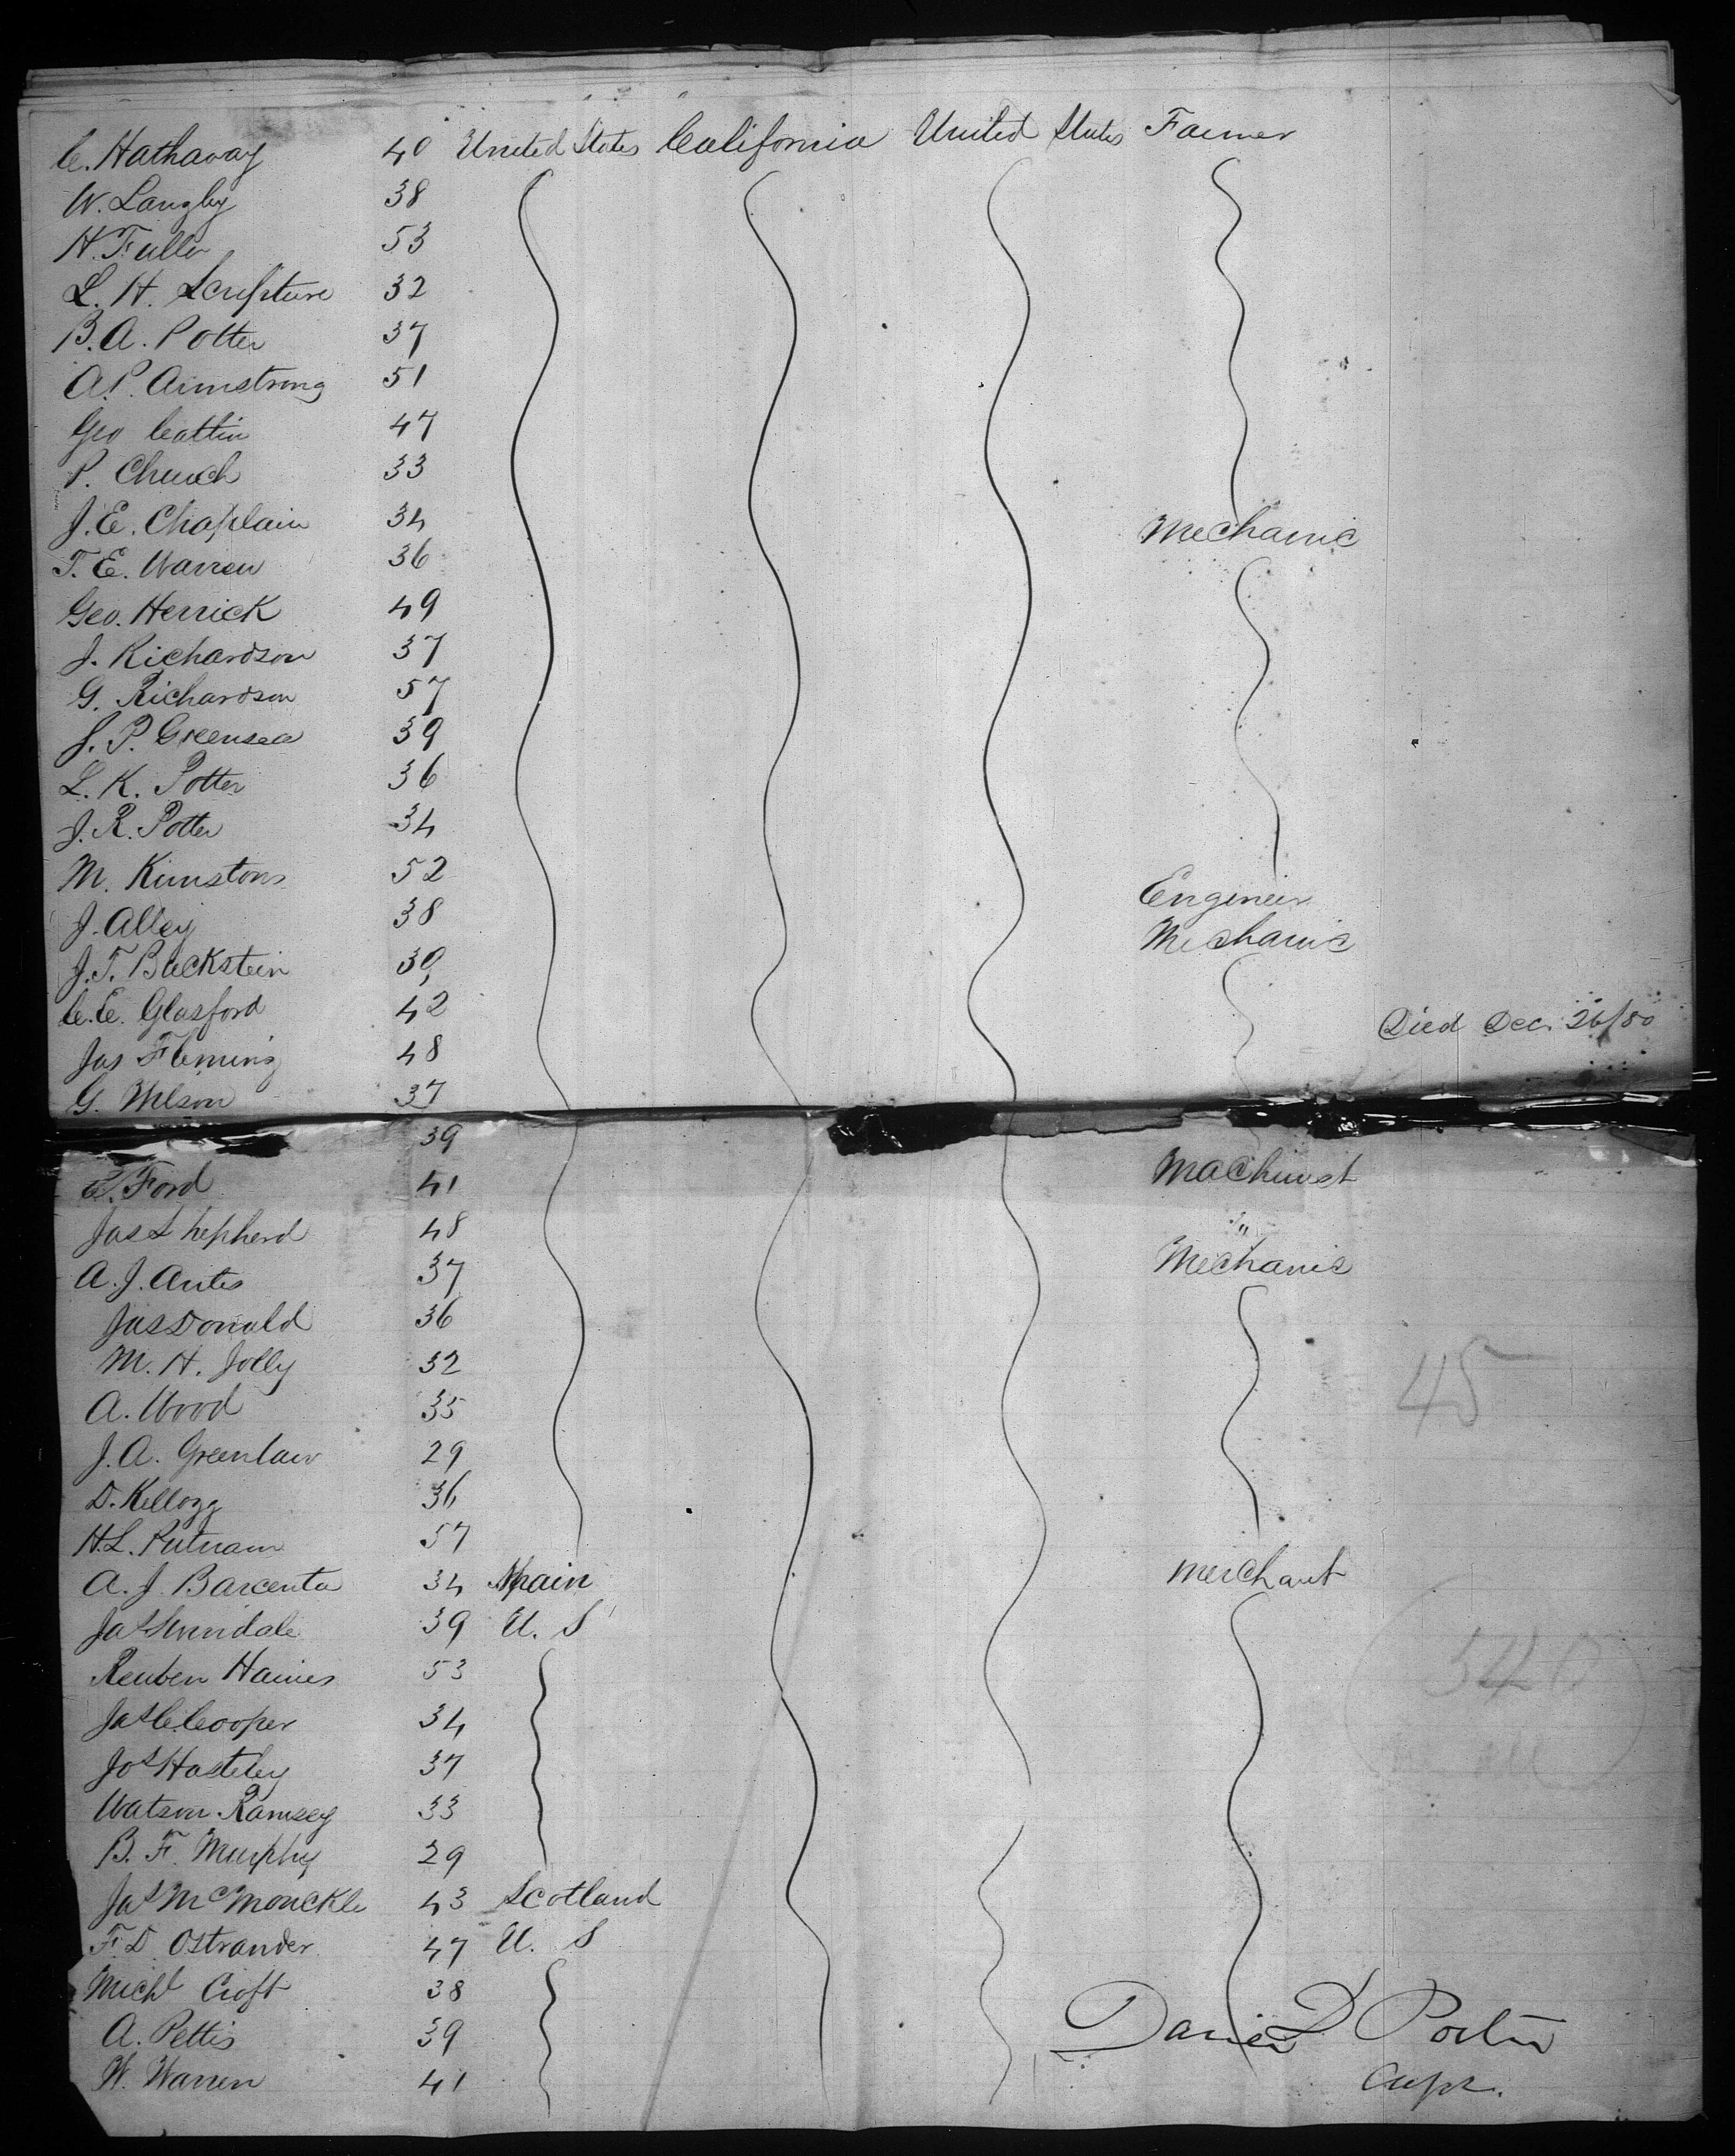 C. Hathaway 40 United States California United States Farmer
W. Langly 38
H. Fuller 53
L. H. Scripture 32
B. A. Potter 37
A. P. Armstrong 51
Geo Cattin 47
P. Church 33
J. E. Chaplain 34 Mechanic
T. E. Warren 36
Geo. Herrick 49
J. Richardson 37
G. Richardson 57
J. P. Greensea 39
L. K. Potter 36
J. R. Potter 34
M. Kimstons 52 Engineer
J. Alley 38 Mechanic
J. T. Backstein 39
C. E. Glasford 42 Died Dec. 26/80
Jas Fleming 48
G. Wilson 37
39
C. Ford 41 Machinist
Jas Shepherd 48 "
A. J. Antes 37 Mechanic
Jas Donald 36
M. H. Jolly 32
A. Wood 35 45
J. A. Greenlaw 29
D. Kellogg 36
H. L. Putnam 57
A. J. Barcenta 34 Spain Merchant
Jas 39 U. S
Reuben Haines 53
Jas C. Cooper 34
Jos Hasteley 37
Watson Ramsey 33
B. F. Murphy 29
Jas McMonckle 43 Scotland
F. D Ostrander 47 U. S
Michl Croft 38
A. Pettis 39 Daniel D Porter
W. Warren 41 Capt.